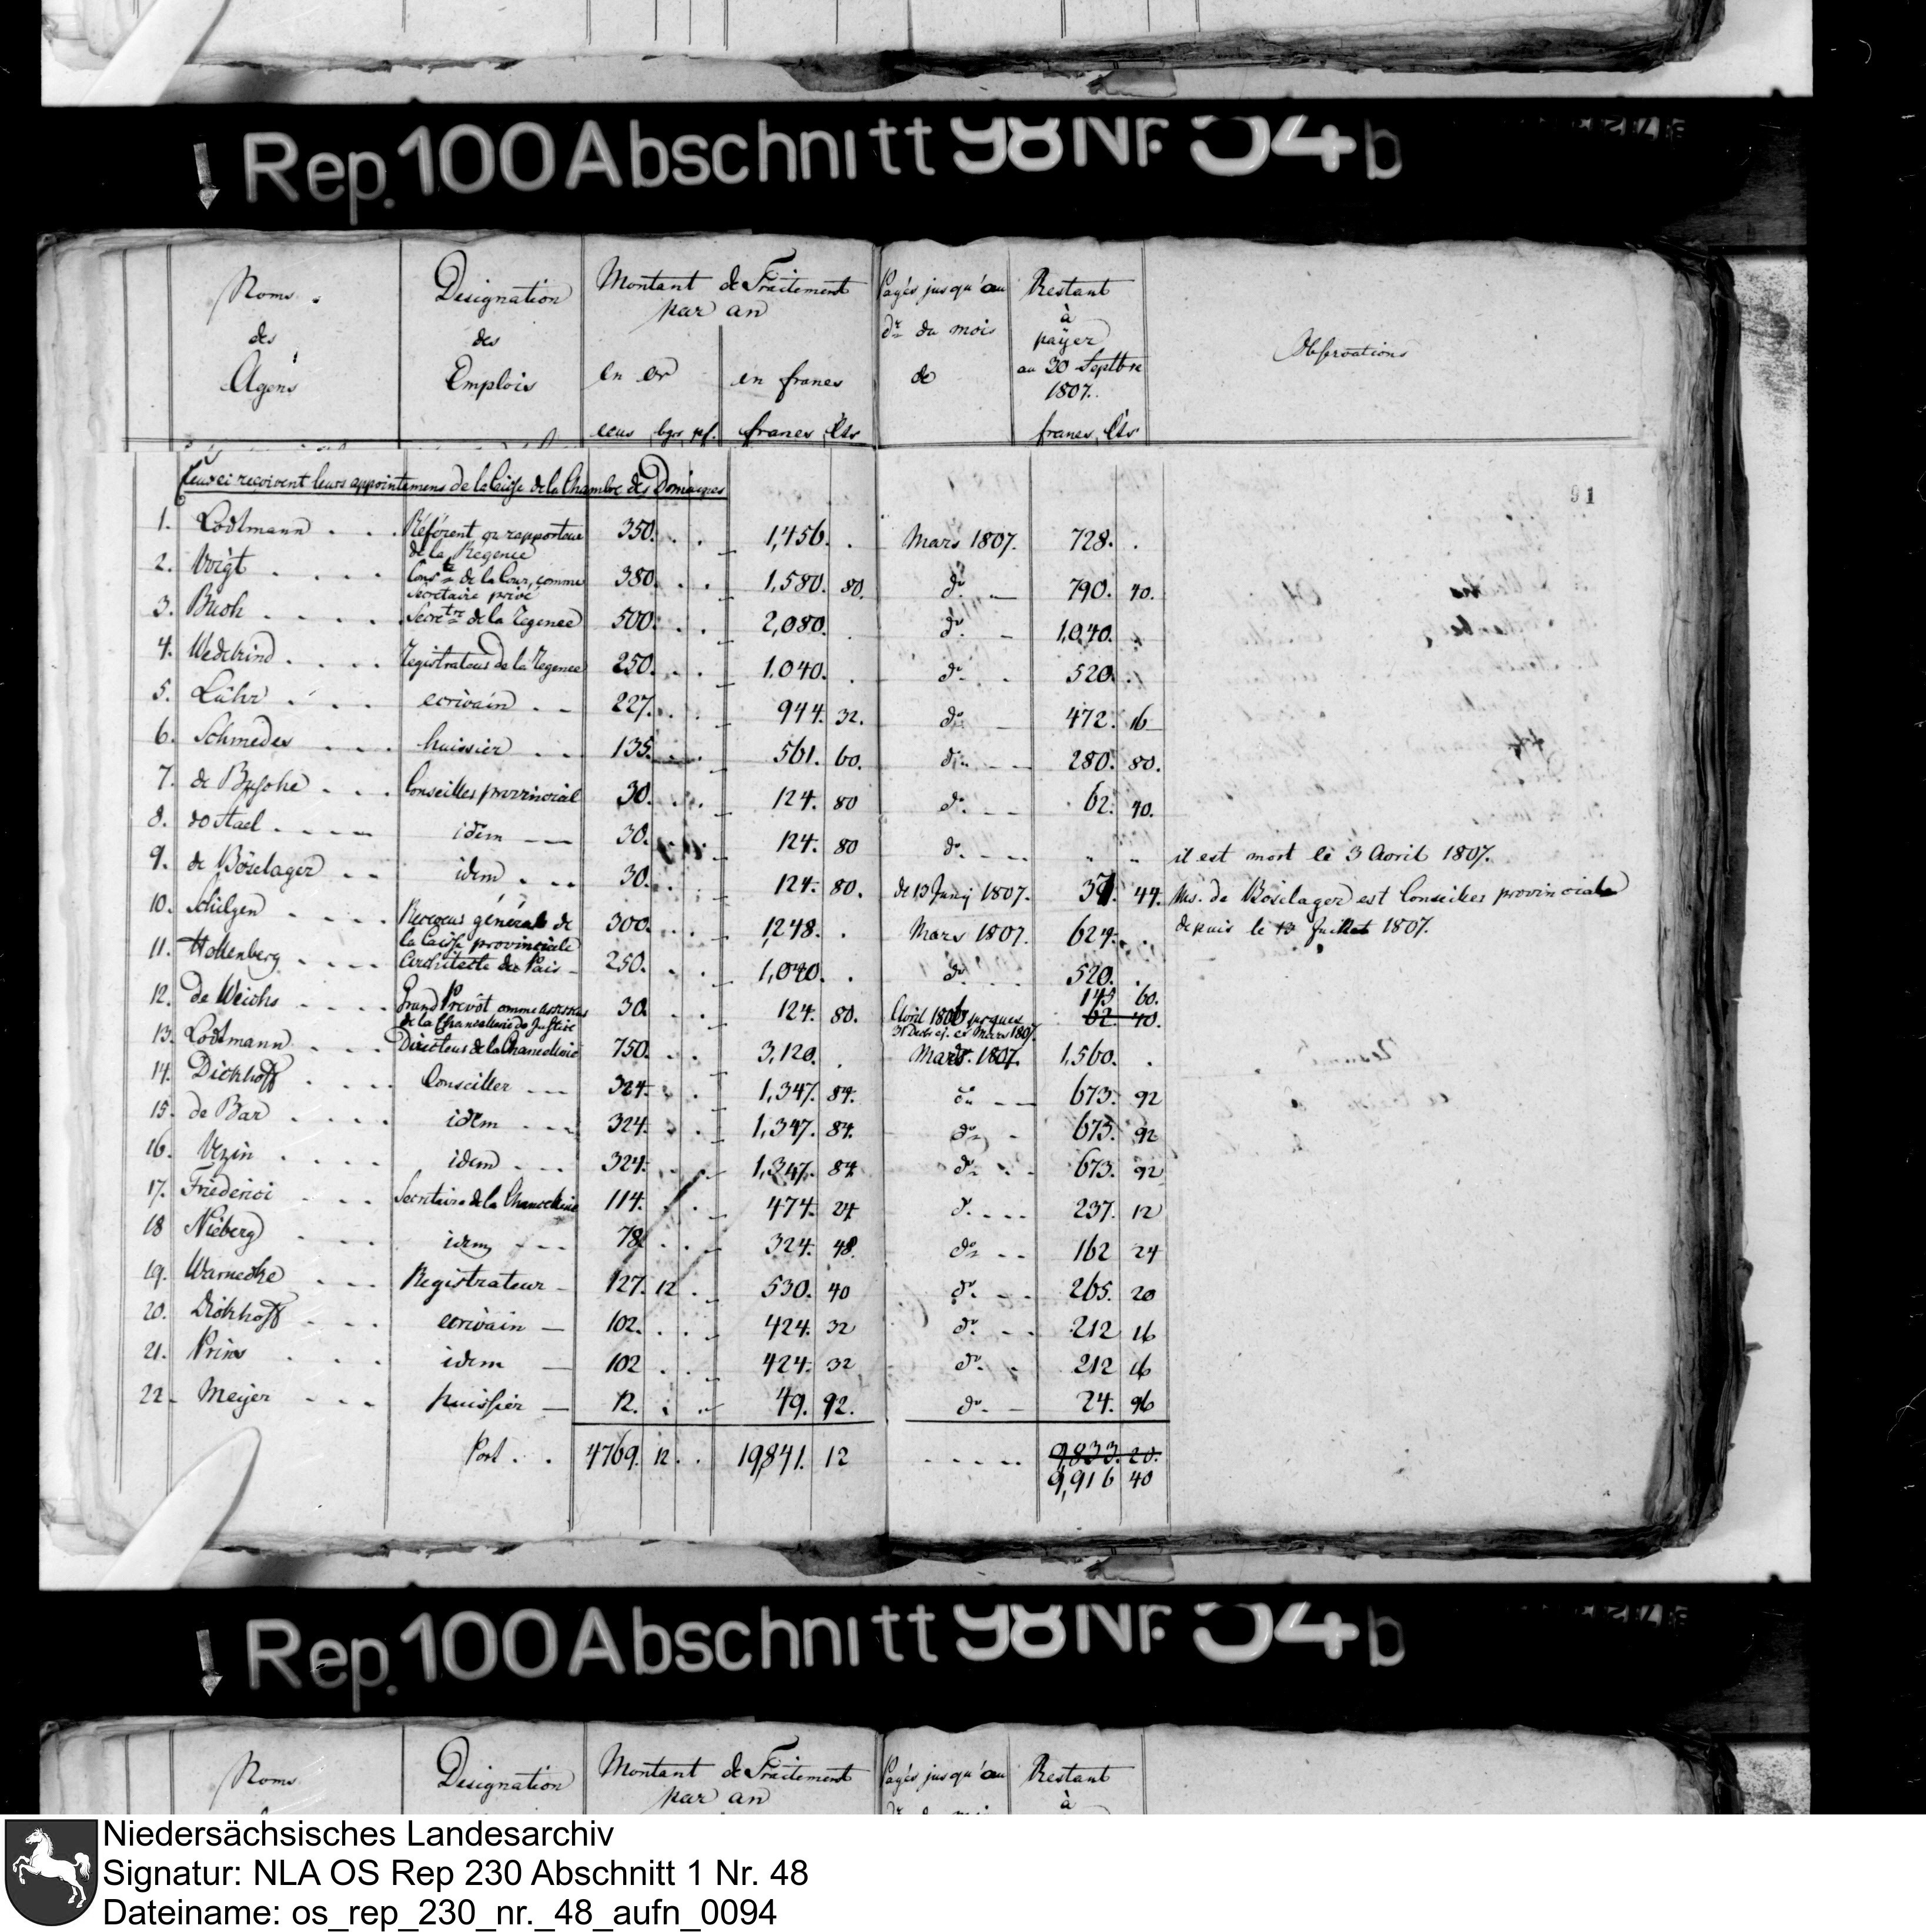 Rep. 100 Abschnitt 98 Nr. 54 b
Noms des Agens
Désignation des Emplois
Montant de Traitement par an
en or
en francs
ecus bgr. pf. francs Cts
Payés jusqu'au dr. du mois de
Restant à payer au 30 Septbre 1807.
francs Cts
Observations
Ceux ci reçoivent leurs appointemens de la Caisse de la Chambre des Domaines
91
1. Lodtmann . . . Référent ou rapporteur de la Regence 350. . . 1,456. . Mars 1807. 728. .
2. Voigt . . . . de la Cour, comme secretaire privé 380. . . 1,580. 80. do. — 790. 40.
3. Buch . . . . Secretre de la Regence 500. . . 2,080. . do. - 1,040. .
4. Wedekind . . . . Registrateur de la Regence 250. . . 1.040. . do. . 520. .
5. Lühr . . . . ecrivain . . 227. . . 944. 32. do. — 472. 16
6. Schmedes . . . huissier . . 135. . . 561. 60. do. — 280. 80.
7. de Bussche . . . Conseiller provincial 30. . . 124. 80 do. — 62. 40.
8. de Stael . . . . idem — 30. . . 124. 80 do. — " " il est mort le 3 Avril 1807.
9. de Böselager . . idem . . . 30. . . 124. 80. de 13 Junÿ 1807. 37. 44. Ms. de Böselager est Conseiller provincial
depuis le 13 Juillet 1807.
10. Schilgen . . . . Receveur général de la Caisse provinciale 300. . . 1,248. . Mars 1807. 624. .
11. Hollenberg . . . . Architecte du Païs - 250. . . 1,040. . do. 520. .
12. de Weichs . . . . Grand Prevôt comme assesseur de la Chancellerie de Justice 30. . . 124. 80. Avril 1806 Mars 1807. 145 60.
62. 40.
13. Lodtmann . . . Directeur de la Chancellerie 750. . . 3,120. . Mars. 1807. 1,560. .
14. Dickhoff . . . . Conseiller — 324. . . 1,347. 84. do. — 673. 92
15. de Bar . . . . idem . . . 324. . . 1,347. 84. do. - 673. 92
16. Vezin . . . . idem . . . 324. . . 1,347. 84 do. . . 673. 92
17. Friederici . . . Secretaire de la Chancellerie 114. . . 474. 24 do. . . . 237. 12
18 Nieberg . . . . idem — 78. . . 324. 48. do. . . 162 24
19. Warnecke . . . Registrateur - 127. 12 . 530. 40 do. — 265. 20
20. Dickhoff . . . ecrivain — 102. . . 424. 32 do. . . 212 16
21. Prins . . . idem — 102 . . 424. 32 do. . 212 16
22. Meyer . . . huissier — 12. . . 49. 92. do. — 24. 96
Port . . 4769. 12. . 19,841. 12 . . . . . 9,833. 20.
9,916 40
Rep. 100 Abschnitt 98 Nr. 54 b
Noms Désignation Montant de Traitement Payés jusqu'au Restant
par an à
Niedersächsisches Landesarchiv
Signatur: NLA OS Rep 230 Abschnitt 1 Nr. 48
Dateiname: os_rep_230_nr._48_aufn_0094